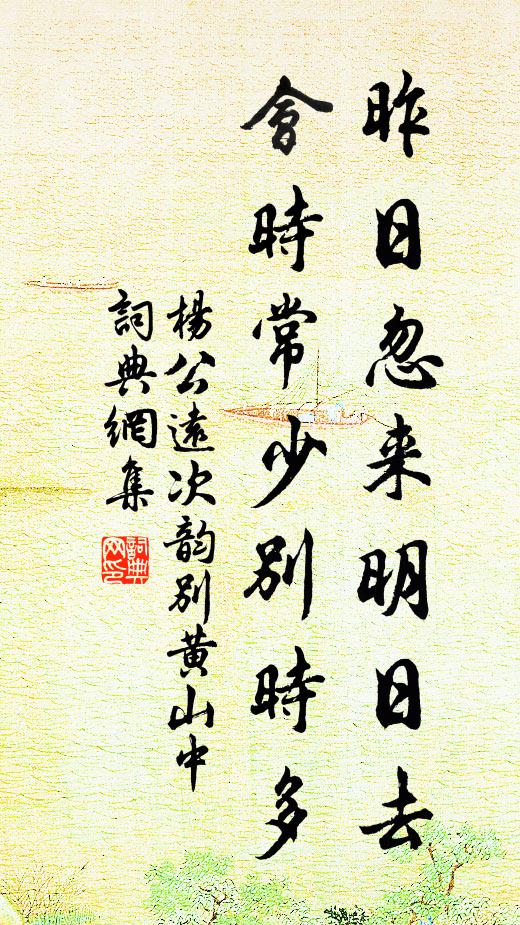 昨日忽来明日去
會時常少別時多
楊公遠次韵別黄山中
詞典網集
詞典网印